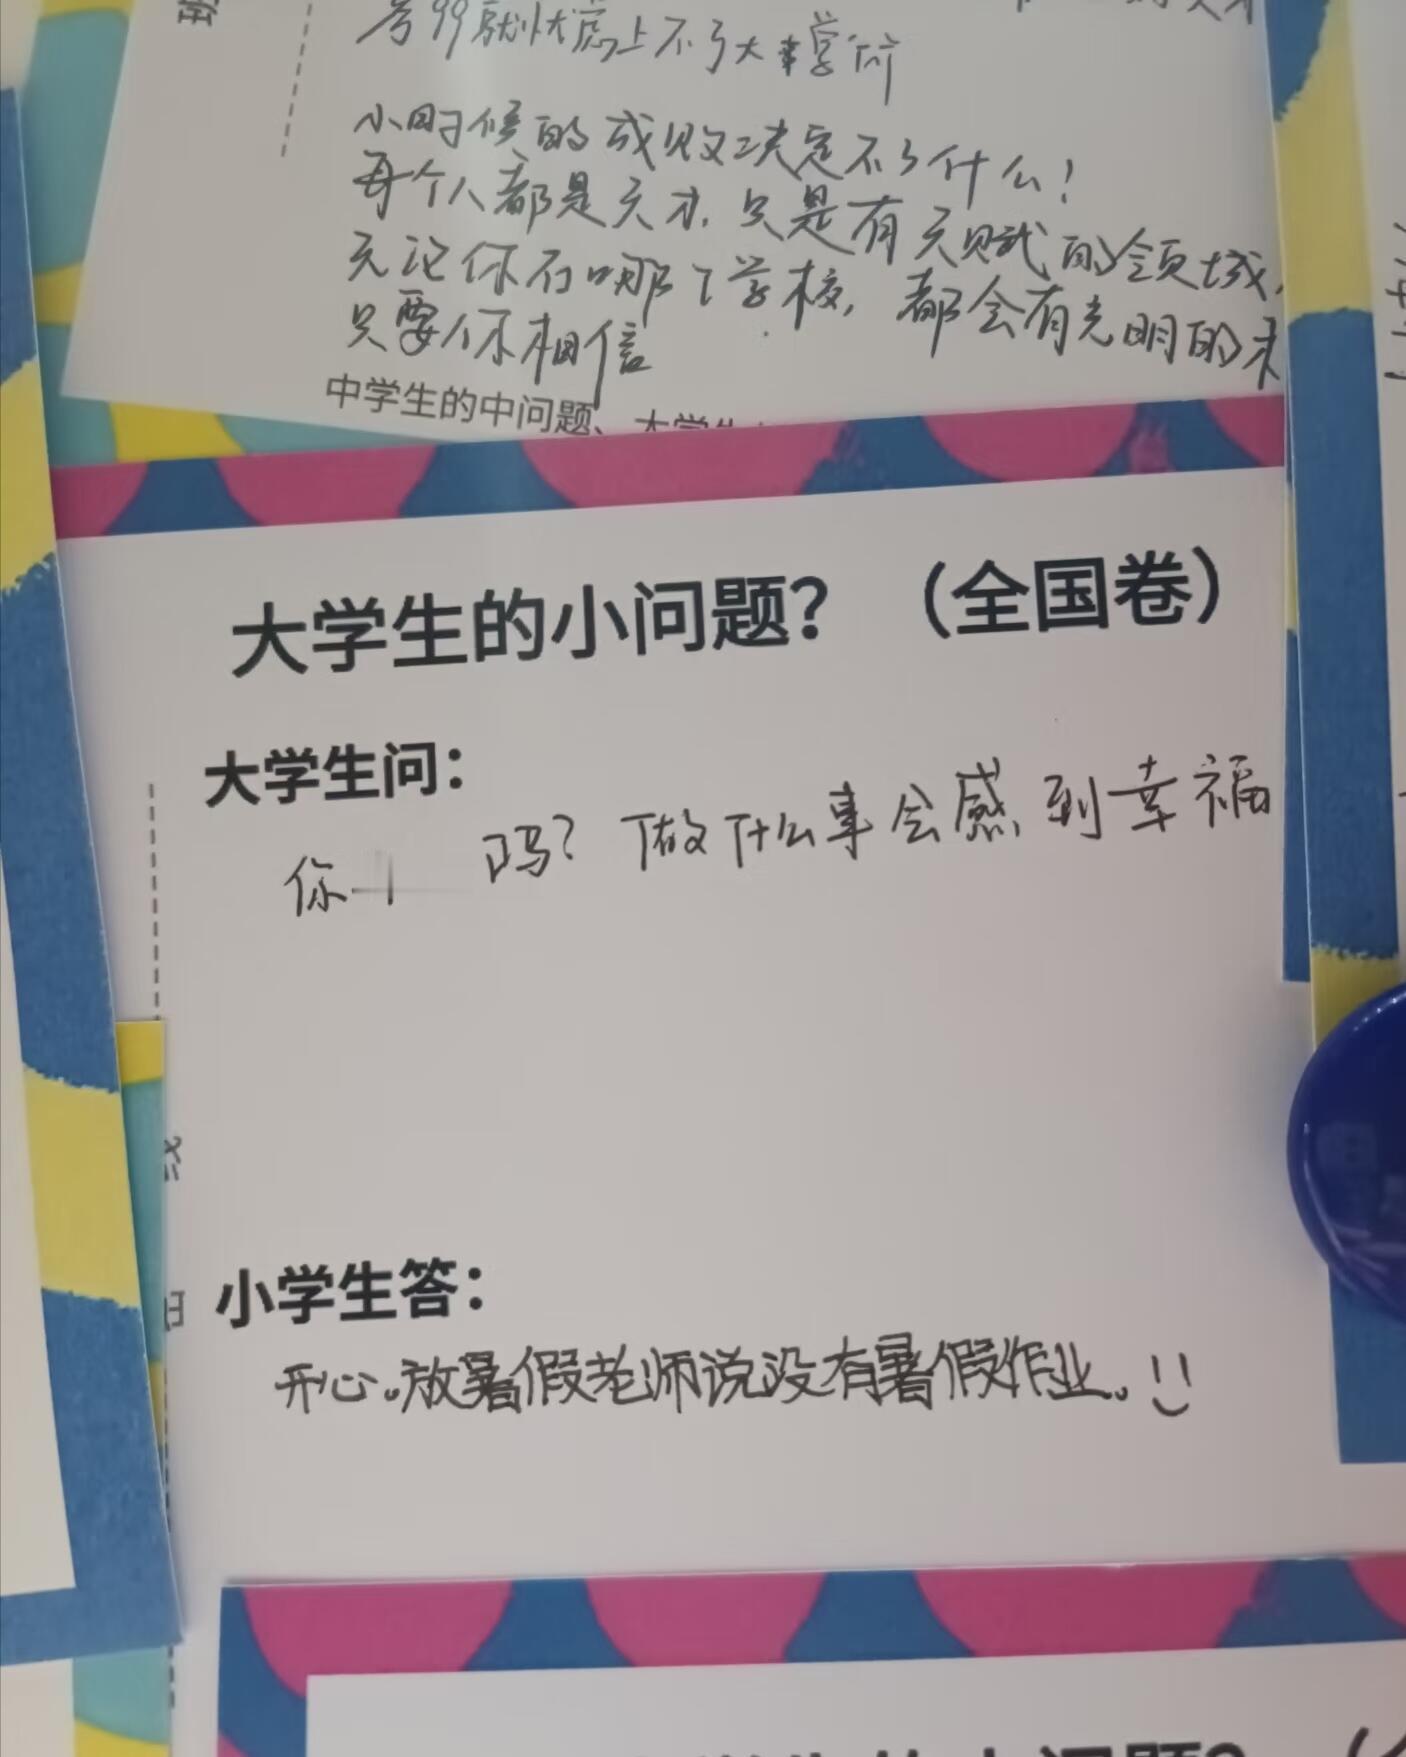 考99就快要上不了大学, 
小时候的成败决定不了什么!
每个人都是天才,只是有天赋的领域,
无论你在哪个学校,都会有光明的未
只要你相信
中学生的中问题、大学生
大学生的小问题?(全国卷)
大学生问:
你 吗?做什么事会感到幸福
小学生答:
开心。放暑假老师说没有暑假作业。